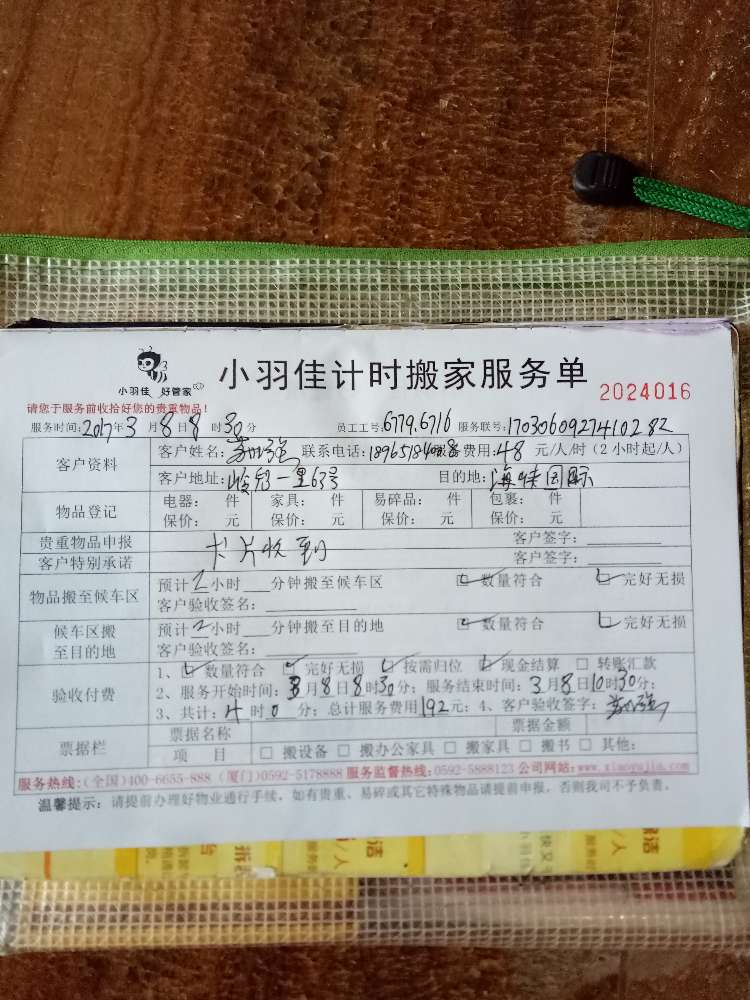 小羽佳 好管家
小羽佳计时搬家服务单 2024016
请您于服务前收拾好您的贵重物品!
服务时间:2017年3月8日8时30分 员工工号:6779.6716 服务联号:17030609274102 82
客户资料 客户姓名: 联系电话: 服务费用:48 元/人/时(2小时起/人)
客户地址: 一里63号 目的地:海峡国际
物品登记 电器: 件 家具: 件 易碎品: 件 包裹: 件
保价: 元 保价: 元 保价: 元 保价: 元
贵重物品申报 卡片收到 客户签字:
客户特别承诺 客户签字:
物品搬至候车区 预计2小时 分钟搬至候车区 数量符合 完好无损
客户验收签名:
候车区搬至目的地 预计2小时 分钟搬至目的地 数量符合 完好无损
客户验收签名:
验收付费 1、数量符合 完好无损 按需归位 现金结算 转账汇款
2、服务开始时间:3月8日8时30分; 服务结束时间:3月8日10时30分;
3、共计:4时0分; 总计服务费用192元; 4、客户验收签字:
票据栏 票据名称 票据金额
项目 搬设备 搬办公家具 搬家具 搬书 其他:
服务热线:(全国)400-6655-888 (厦门)0592-5178888 服务监督热线:0592-5888123 公司网站:www.xiaoyujia.com
温馨提示: 请提前办理好物业通行手续,如有贵重、易碎或其它特殊物品请提前申报,否则我司不予负责。